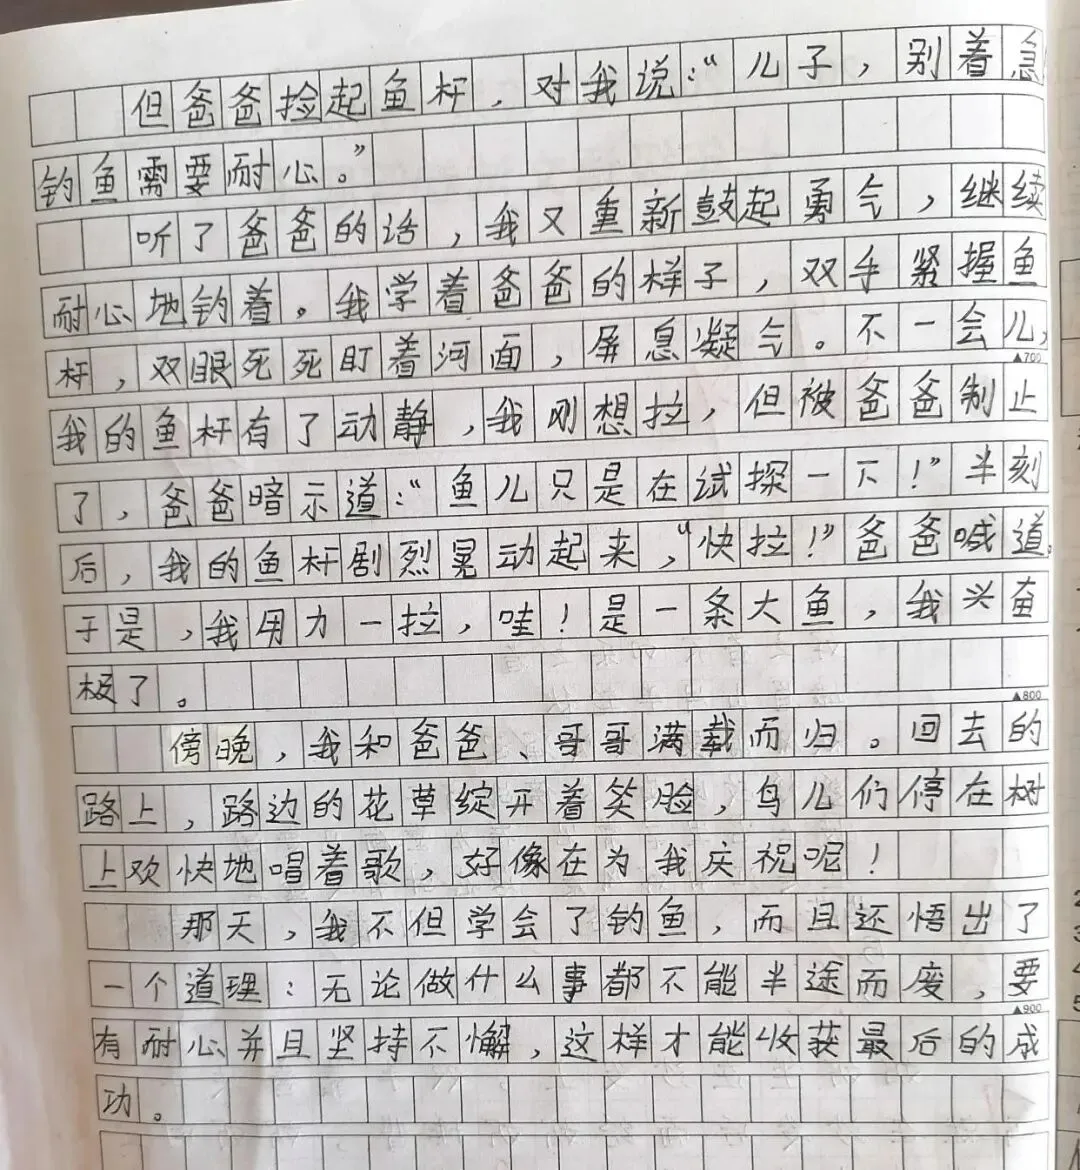 但爸爸捡起鱼杆，对我说：“儿子，别着急
钓鱼需要耐心。”
听了爸爸的话，我又重新鼓起勇气，继续
耐心地钓着。我学着爸爸的样子，双手紧握鱼
杆，双眼死死盯着河面，屏息凝气。不一会儿，
▲700
我的鱼杆有了动静，我刚想拉，但被爸爸制止
了，爸爸暗示道：“鱼儿只是在试探一下！”半刻
后，我的鱼杆剧烈晃动起来，“快拉！”爸爸喊道。
于是，我用力一拉，哇！是一条大鱼，我兴奋
极了。
▲800
傍晚，我和爸爸、哥哥满载而归。回去的
路上，路边的花草绽开着笑脸，鸟儿们停在树
上欢快地唱着歌，好像在为我庆祝呢！
那天，我不但学会了钓鱼，而且还悟出了
一个道理：无论做什么事都不能半途而废，要
▲900
有耐心并且坚持不懈，这样才能收获最后的成
功。